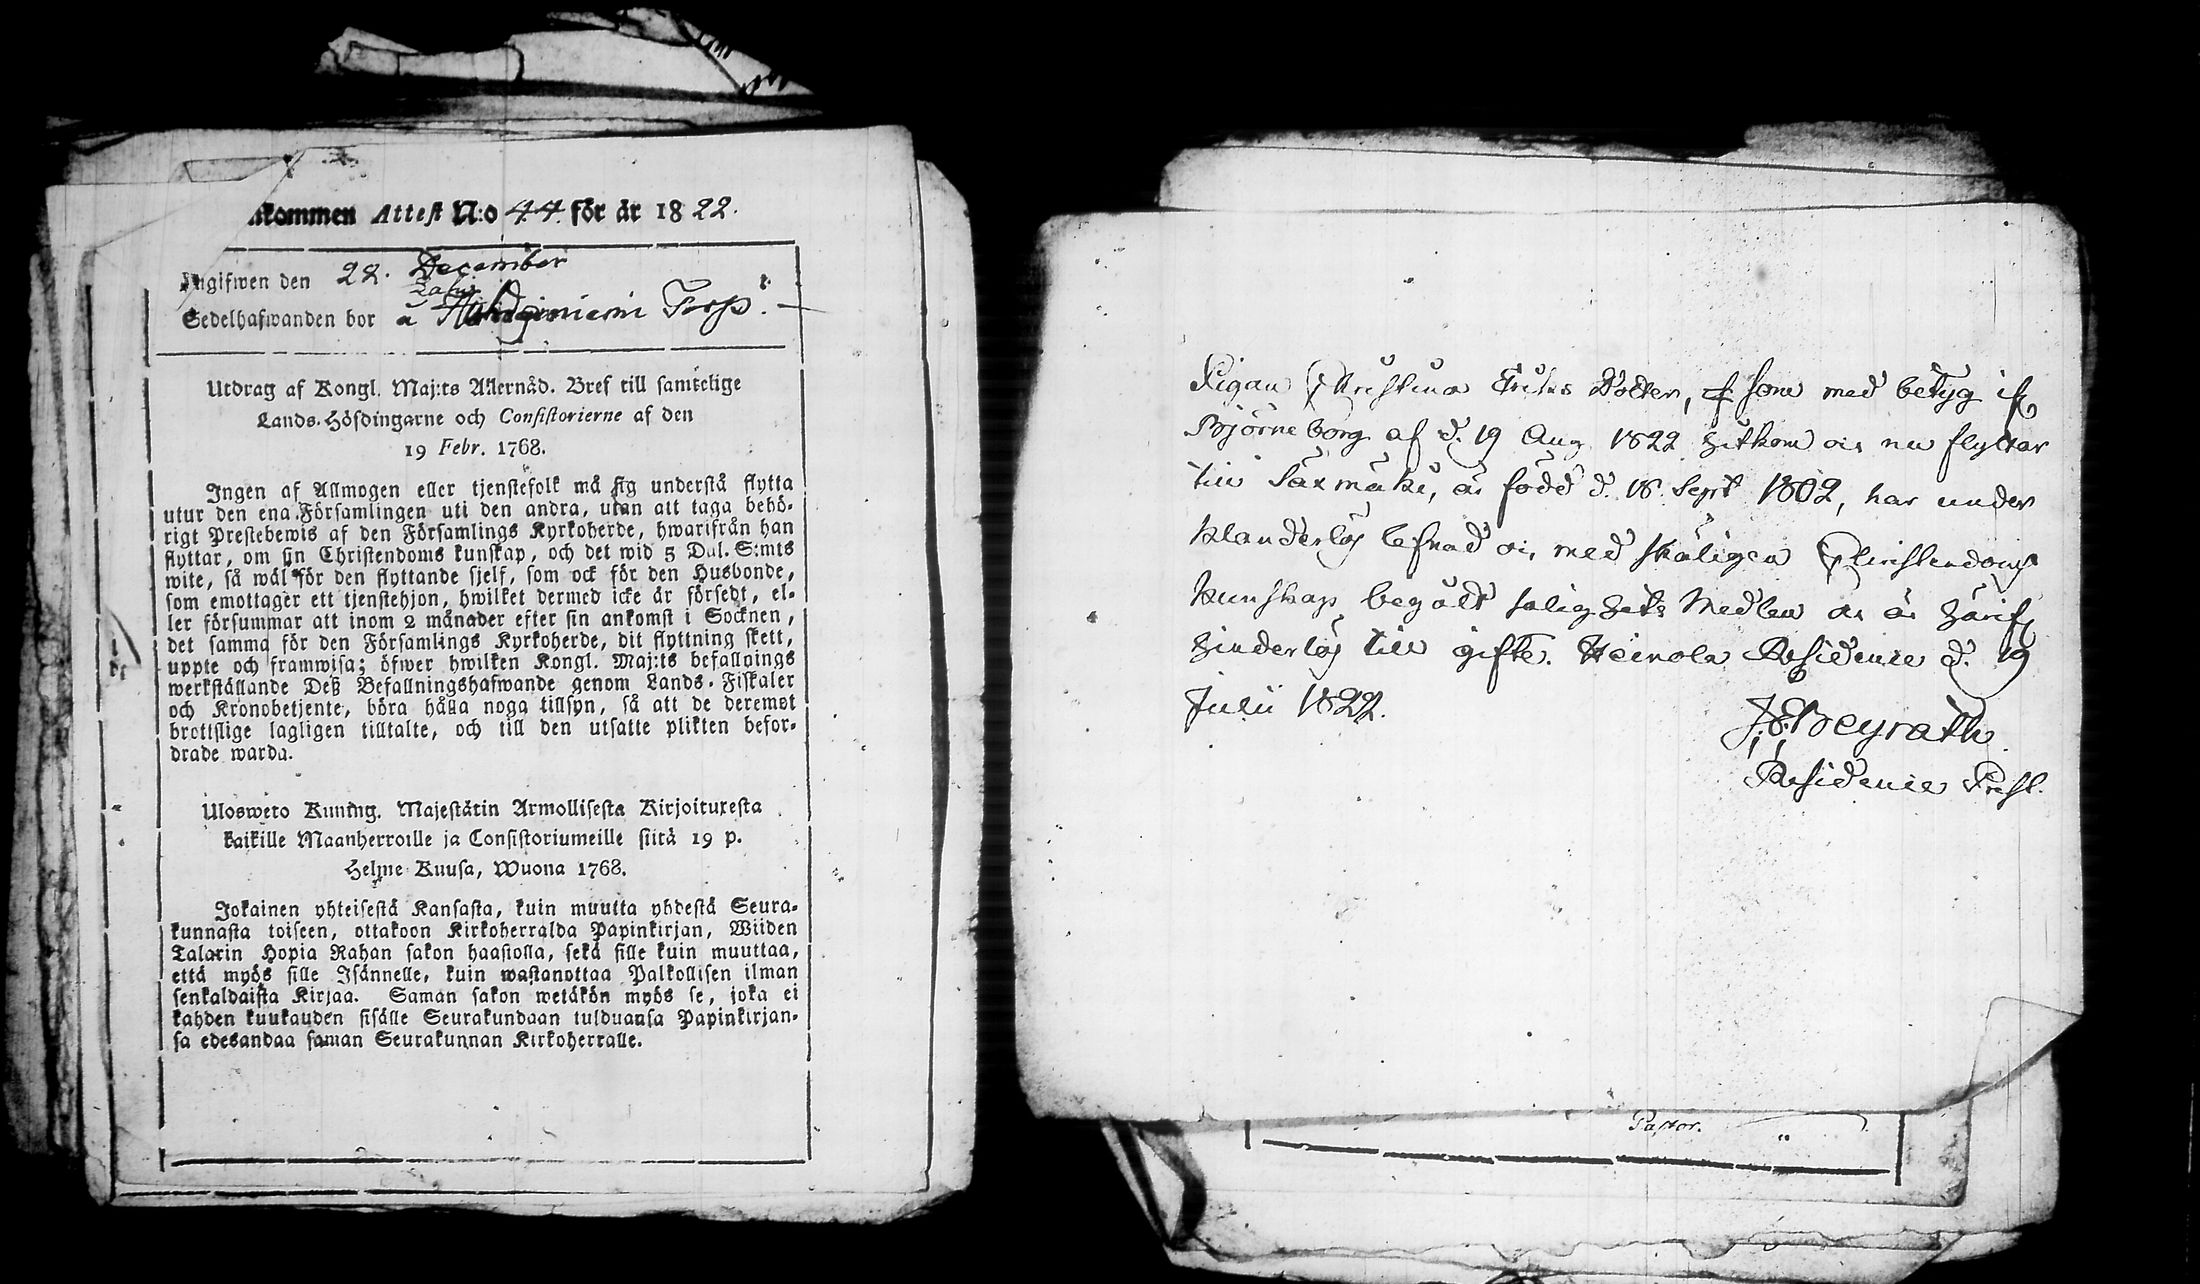 nkommen Attest N:o 44. för år 1822.
Ingifwen den 22. December
Sedelhafwanden bor å Torp.
Utdrag af Kongl. Maj:ts Allernåd. Bref till samtelige
Lands-Höfdingarne och Consistorierne af den
19 Febr. 1768.
Ingen af Allmogen eller tjenstefolk må sig understå flytta
utur den ena Församlingen uti den andra, utan att taga behö-
rigt Prestebewis af den Församlings Kyrkoherde, hwarifrån han
flyttar, om sin Christendoms kunskap, och det wid 5 Dal. S:mts
wite, så wäl för den flyttande sjelf, som ock för den Husbonde,
som emottager ett tjenstehjon, hwilket dermed icke är försedt, el-
ler försummar att inom 2 månader efter sin ankomst i Socknen,
det samma för den Församlings Kyrkoherde, dit flyttning skett,
uppte och framwisa; öfwer hwilken Kongl. Maj:ts befallnings
werkställande Deß Befallningshafwande genom Lands-Fiskaler
och Kronobetjente, böra hålla noga tillsyn, så att de deremot
brottslige lagligen tilltalte, och till den utsatte plikten befor-
drade warda.
Ulosweto Kuning. Majestätin Armollisesta Kirjoituxesta
kaikille Maanherroille ja Consistoriumeille siitä 19 p.
Helme-Kuusa, Wuona 1768.
Jokainen yhteisestä Kansasta, kuin muutta yhdestä Seura-
kunnasta toiseen, ottakoon Kirkoherralda Papinkirjan, Wiiden
Talarin Hopia Rahan sakon haastolla, sekä sille kuin muuttaa,
että myös sille Isännelle, kuin wastanottaa Palkollisen ilman
senkaldaista Kirjaa. Saman sakon wetäkön myös se, joka ei
kahden kuukauden sisälle Seurakundaan tulduansa Papinkirjan-
sa edesandaa saman Seurakunnan Kirkoherralle.
Pigan Christina Eriks Dotter, som med betyg ifr
Björneborg af d. 19 Aug 1822 hitkom och nu flyttar
till Säxmäki, är född d. 18 Sept 1802, har under
klanderlös lefnad och med skäligen Christendoms
kunskap begått salighets Medlen och är härifr
hinderlös till gifte. Heinola Residence d. 19
Julii 1822.
Weyrath
Residence Prest.
Pastor.